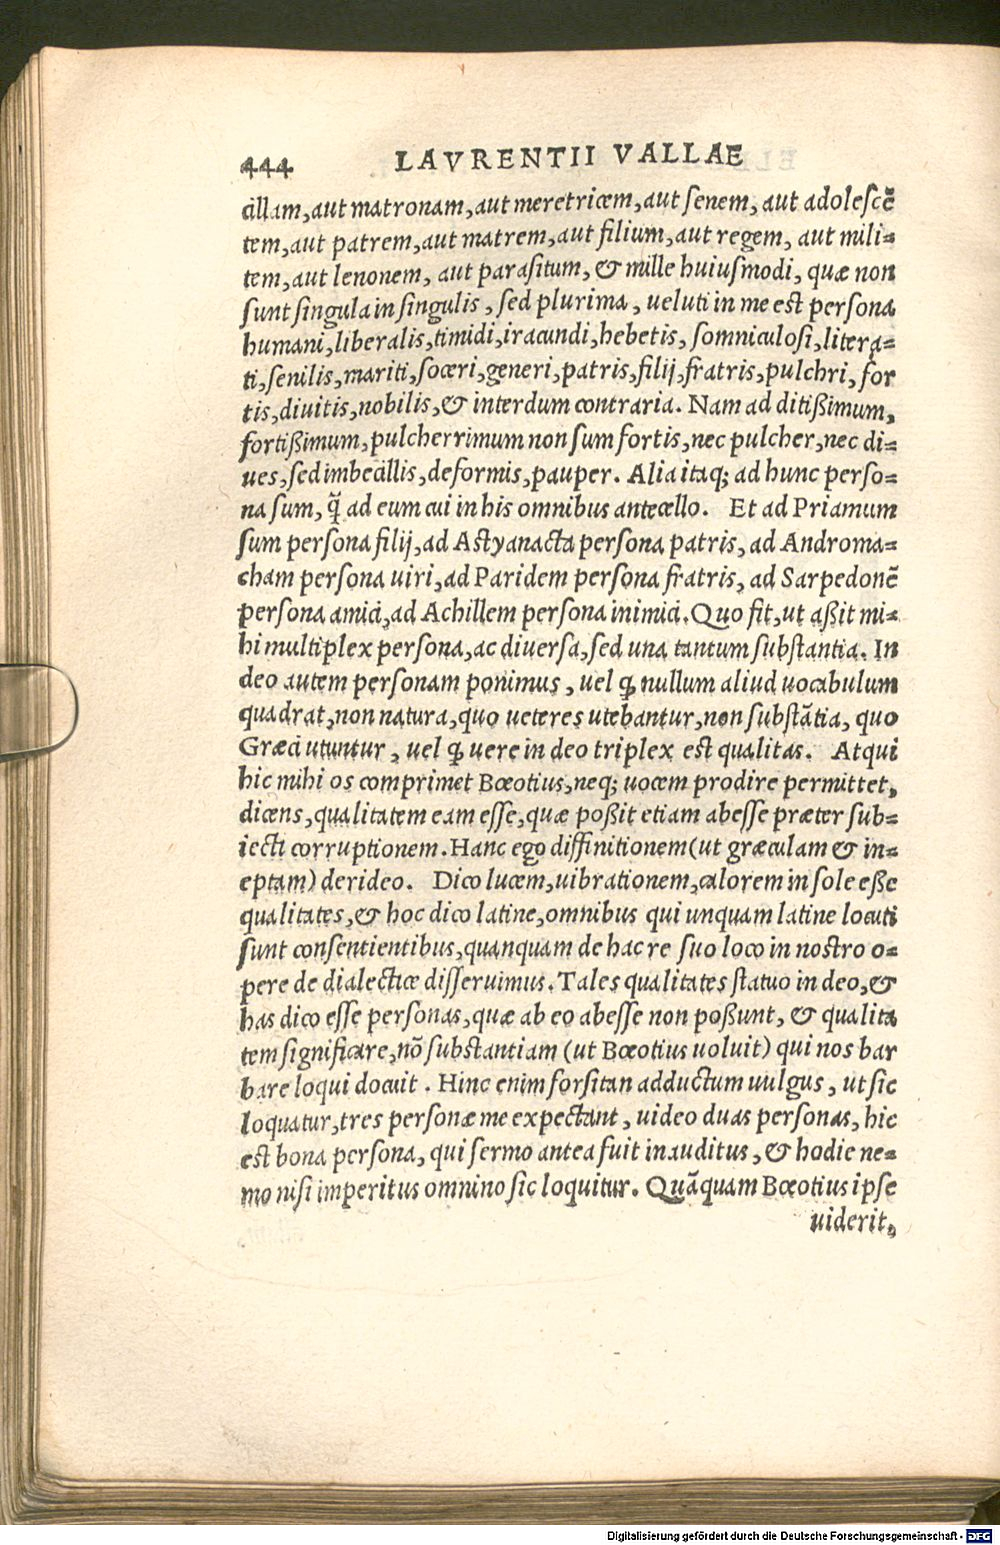 444 LAVRENTII VALLAE
cillam, aut matronam, aut meretricem, aut senem, aut adolescē
tem, aut patrem, aut matrem, aut filium, aut regem, aut mili=
tem, aut lenonem, aut parasitum, & mille huiusmodi, quæ non
sunt singula in singulis, sed plurima, ueluti in me est persona
humani, liberalis, timidi, iracundi, hebetis, somniculosi, litera=
ti, senilis, mariti, soceri, generi, patris, filij, fratris, pulchri, for
tis, diuitis, nobilis, & interdum contraria. Nam ad ditißimum,
fortißimum, pulcherrimum non sum fortis, nec pulcher, nec di=
ues, sed imbecillis, deformis, pauper. Alia itaq; ad hunc perso=
na sum, q̃ ad eum cui in his omnibus antecello. Et ad Priamum
sum persona filij, ad Astyanacta persona patris, ad Androma=
cham persona uiri, ad Paridem persona fratris, ad Sarpedonē
persona amici, ad Achillem persona inimici. Quo fit, ut aßit mi=
hi multiplex persona, ac diuersa, sed una tantum substantia. In
deo autem personam ponimus, uel ꝙ nullum aliud uocabulum
quadrat, non natura, quo ueteres utebantur, non substātia, quo
Græci utuntur, uel ꝙ uere in deo triplex est qualitas. Atqui
hic mihi os comprimet Boeotius, neq; uocem prodire permittet,
dicens, qualitatem eam esse, quæ poßit etiam abesse præter sub=
iecti corruptionem. Hanc ego diffinitionem (ut græculam & in=
eptam) derideo. Dico lucem, uibrationem, calorem in sole eße
qualitates, & hoc dico latine, omnibus qui unquam latine locuti
sunt consentientibus, quanquam de hac re suo loco in nostro o=
pere de dialectice disseruimus. Tales qualitates statuo in deo, &
has dico esse personas, quæ ab eo abesse non poßunt, & qualita
tem significare, nō substantiam (ut Boeotius uoluit) qui nos bar
bare loqui docuit. Hinc enim forsitan adductum uulgus, ut sic
loquatur, tres personæ me expectant, uideo duas personas, hic
est bona persona, qui sermo antea fuit inauditus, & hodie ne=
mo nisi imperitus omnino sic loquitur. Quāquam Boeotius ipse
uiderit,
Digitalisierung gefördert durch die Deutsche Forschungsgemeinschaft - DFG